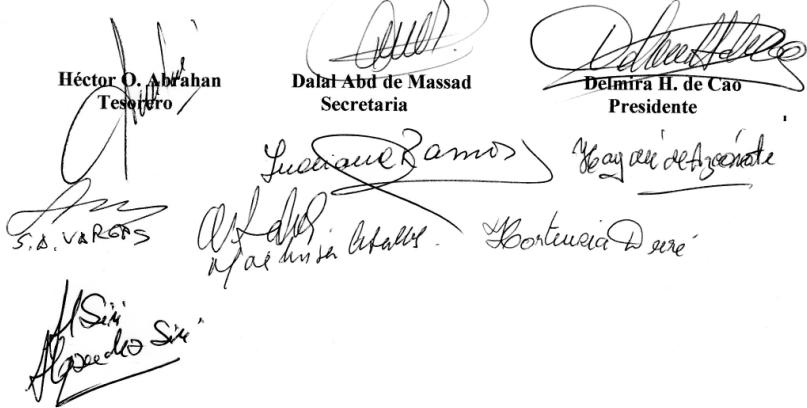 Héctor O. Abrahan
Tesorero
Dalal Abd de Massad
Secretaria
Delmira H. de Cao
Presidente
Luciana Ramos
Haydeé de Azconate
S.A. VARGAS
Hortencia Duré
A Siri
Alejandro Siri